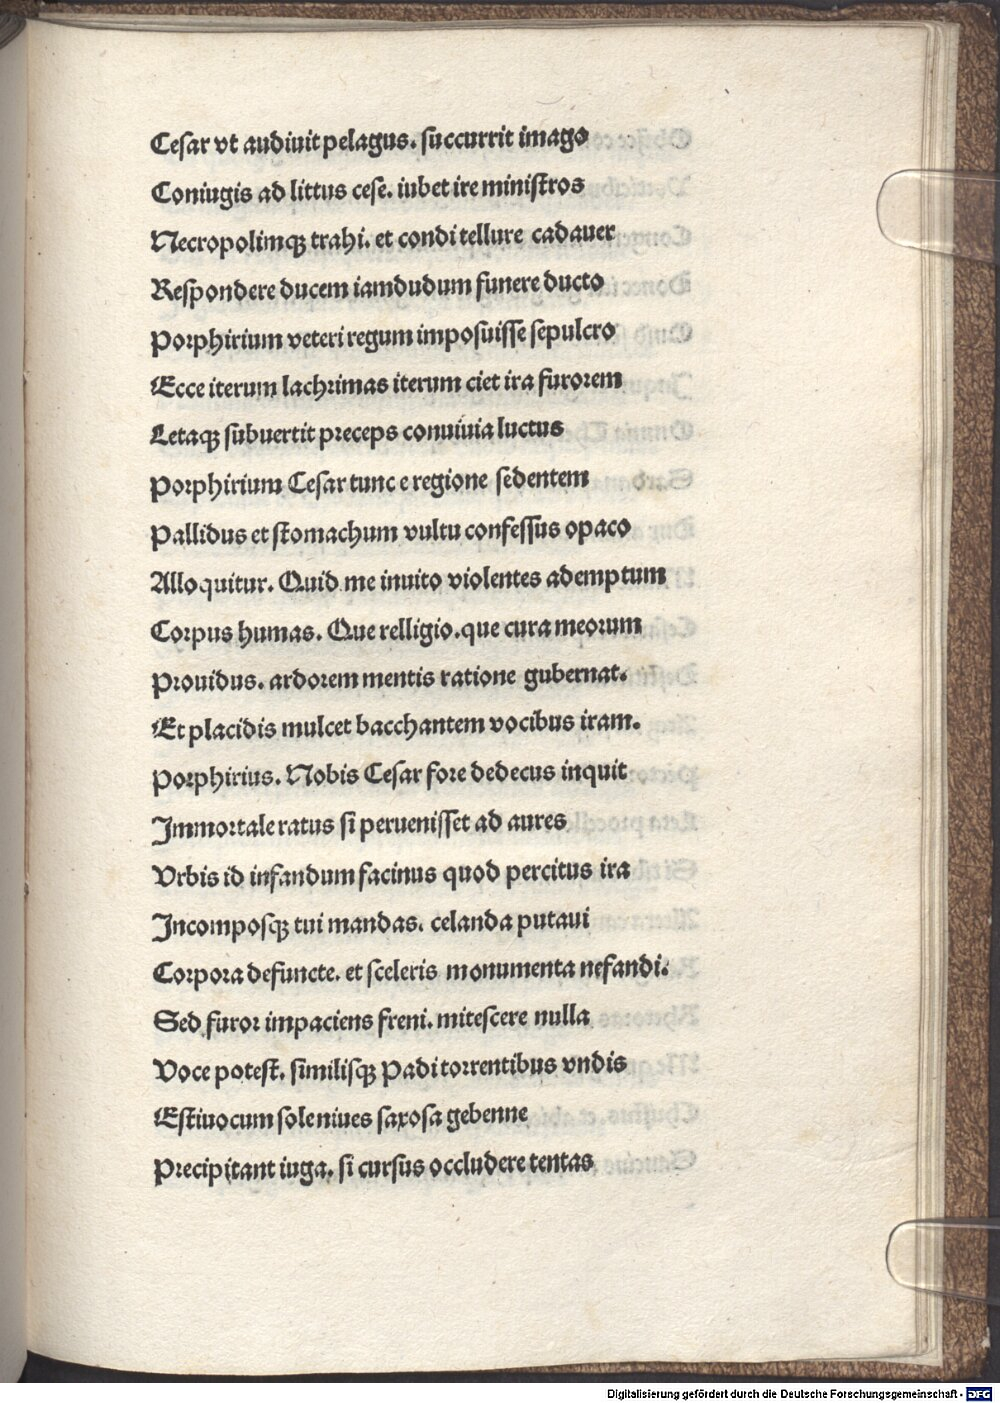 Cesar vt audiuit pelagus. succurrit imago
Coniugis ad littus cese. iubet ire ministros
Necropolimqꝫ trahi. et condi tellure cadauer
Respondere ducem iamdudum funere ducto
Porphirium veteri regum imposuisse sepulcro
Ecce iterum lachrimas iterum ciet ira furorem
Letaqꝫ subuertit preceps conuiuia luctus
Porphirium Cesar tunc e regione sedentem
Pallidus et stomachum vultu confessus opaco
Alloquitur. Quid me inuito violentes ademptum
Corpus humas. Que relligio. que cura meorum
Prouidus. ardorem mentis ratione gubernat.
Et placidis mulcet bacchantem vocibus iram.
Porphirius. Nobis Cesar fore dedecus inquit
Immortale ratus si peruenisset ad aures
Vrbis id infandum facinus quod percitus ira
Incomposqꝫ tui mandas. celanda putaui
Corpora defuncte. et sceleris monumenta nefandi.
Sed furor impaciens freni. mitescere nulla
Voce potest. similisqꝫ Padi torrentibus vndis
Estiuo cum sole niues saxosa gebenne
Precipitant iuga. si cursus occludere tentas
Digitalisierung gefördert durch die Deutsche Forschungsgemeinschaft - DFG